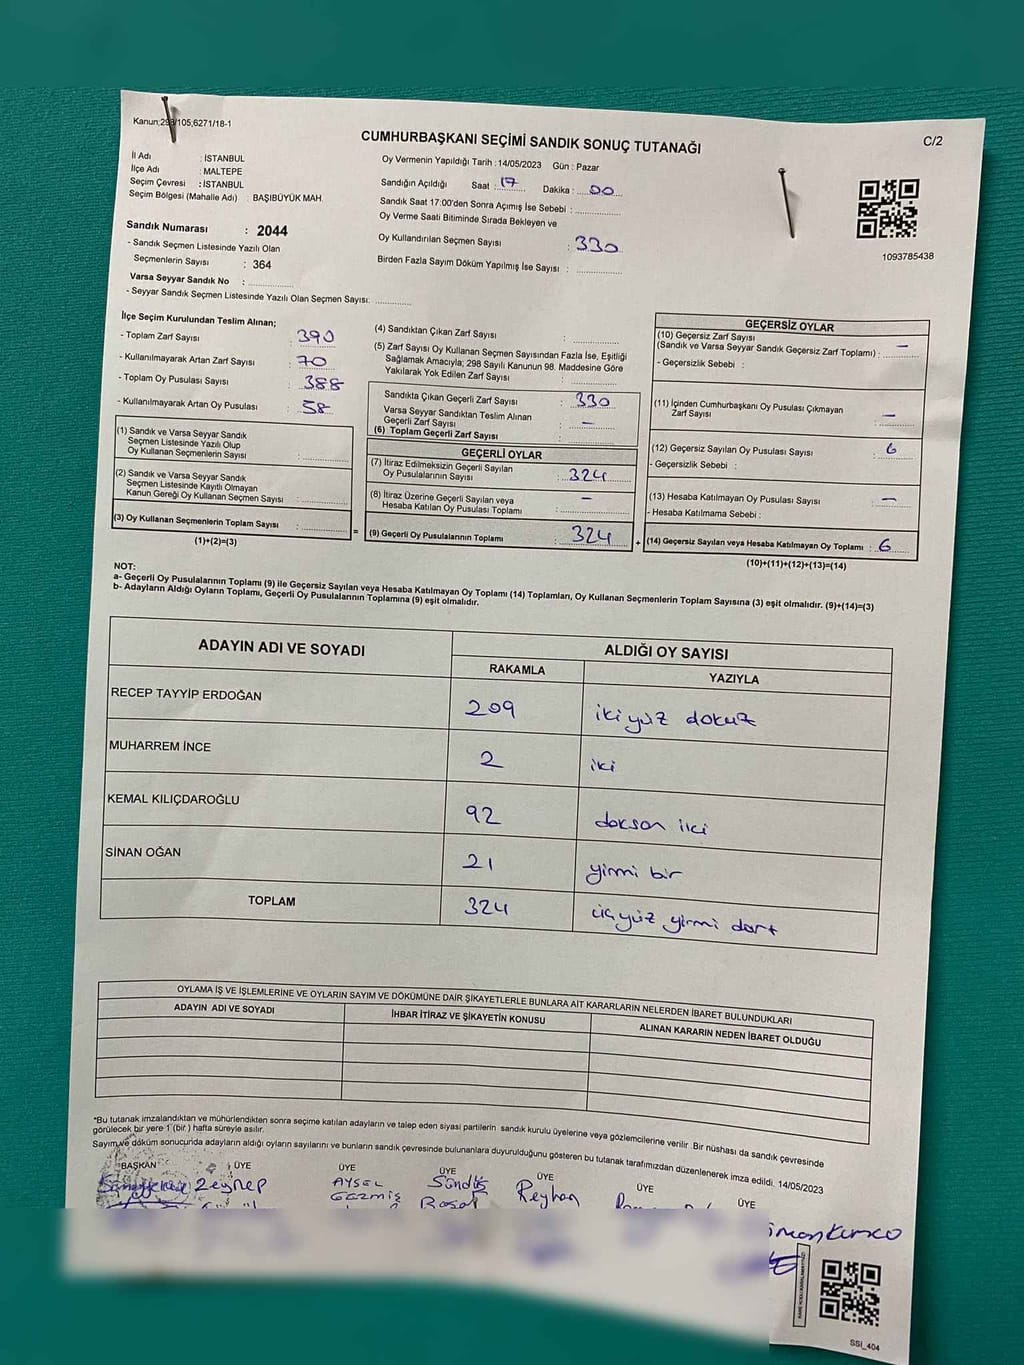 Kanun:298/105,6271/18-1
C/2
CUMHURBAŞKANI SEÇİMİ SANDIK SONUÇ TUTANAĞI
İl Adı : İSTANBUL
İlçe Adı : MALTEPE
Seçim Çevresi : İSTANBUL
Seçim Bölgesi (Mahalle Adı) : BAŞIBÜYÜK MAH.
Sandık Numarası : 2044
- Sandık Seçmen Listesinde Yazılı Olan
Seçmenlerin Sayısı : 364
Varsa Seyyar Sandık No :
- Seyyar Sandık Seçmen Listesinde Yazılı Olan Seçmen Sayısı:
Oy Vermenin Yapıldığı Tarih : 14/05/2023 Gün : Pazar
Sandığın Açıldığı Saat : 17 Dakika : 00
Sandık Saat 17:00'den Sonra Açımış İse Sebebi :
Oy Verme Saati Bitiminde Sırada Bekleyen ve
Oy Kullandırılan Seçmen Sayısı : 330
Birden Fazla Sayım Döküm Yapılmış İse Sayısı :
1093785438
İlçe Seçim Kurulundan Teslim Alınan;
- Toplam Zarf Sayısı : 390
- Kullanılmayarak Artan Zarf Sayısı : 70
- Toplam Oy Pusulası Sayısı : 388
- Kullanılmayarak Artan Oy Pusulası : 58
(1) Sandık ve Varsa Seyyar Sandık
Seçmen Listesinde Yazılı Olup
Oy Kullanan Seçmenlerin Sayısı :
(2) Sandık ve Varsa Seyyar Sandık
Seçmen Listesinde Kayıtlı Olmayan
Kanun Gereği Oy Kullanan Seçmen Sayısı :
(3) Oy Kullanan Seçmenlerin Toplam Sayısı :
(1)+(2)=(3)
=
(4) Sandıktan Çıkan Zarf Sayısı :
(5) Zarf Sayısı Oy Kullanan Seçmen Sayısından Fazla İse, Eşitliği
Sağlamak Amacıyla; 298 Sayılı Kanunun 98. Maddesine Göre
Yakılarak Yok Edilen Zarf Sayısı :
Sandıkta Çıkan Geçerli Zarf Sayısı : 330
Varsa Seyyar Sandıktan Teslim Alınan
Geçerli Zarf Sayısı : -
(6) Toplam Geçerli Zarf Sayısı :
GEÇERLİ OYLAR
(7) İtiraz Edilmeksizin Geçerli Sayılan
Oy Pusulalarının Sayısı : 324
(8) İtiraz Üzerine Geçerli Sayılan veya
Hesaba Katılan Oy Pusulası Toplamı : -
(9) Geçerli Oy Pusulalarının Toplamı : 324
+
GEÇERSİZ OYLAR
(10) Geçersiz Zarf Sayısı
(Sandık ve Varsa Seyyar Sandık Geçersiz Zarf Toplamı) : -
- Geçersizlik Sebebi :
(11) İçinden Cumhurbaşkanı Oy Pusulası Çıkmayan
Zarf Sayısı : -
(12) Geçersiz Sayılan Oy Pusulası Sayısı : 6
- Geçersizlik Sebebi :
(13) Hesaba Katılmayan Oy Pusulası Sayısı : -
- Hesaba Katılmama Sebebi :
(14) Geçersiz Sayılan veya Hesaba Katılmayan Oy Toplamı : 6
(10)+(11)+(12)+(13)=(14)
NOT:
a- Geçerli Oy Pusulalarının Toplamı (9) ile Geçersiz Sayılan veya Hesaba Katılmayan Oy Toplamı (14) Toplamları, Oy Kullanan Seçmenlerin Toplam Sayısına (3) eşit olmalıdır. (9)+(14)=(3)
b- Adayların Aldığı Oyların Toplamı, Geçerli Oy Pusulalarının Toplamına (9) eşit olmalıdır.
ADAYIN ADI VE SOYADI ALDIĞI OY SAYISI
RAKAMLA YAZIYLA
RECEP TAYYİP ERDOĞAN 209 ikiyüz dokuz
MUHARREM İNCE 2 iki
KEMAL KILIÇDAROĞLU 92 doksan iki
SİNAN OĞAN 21 yirmi bir
TOPLAM 324 üçyüz yirmi dört
OYLAMA İŞ VE İŞLEMLERİNE VE OYLARIN SAYIM VE DÖKÜMÜNE DAİR ŞİKAYETLERLE BUNLARA AİT KARARLARIN NELERDEN İBARET BULUNDUKLARI
ADAYIN ADI VE SOYADI İHBAR İTİRAZ VE ŞİKAYETİN KONUSU ALINAN KARARIN NEDEN İBARET OLDUĞU
*Bu tutanak imzalandıktan ve mühürlendikten sonra seçime katılan adayların ve talep eden siyasi partilerin sandık kurulu üyelerine veya gözlemcilerine verilir .Bir nüshası da sandık çevresinde
görülecek bir yere 1 (bir ) hafta süreyle asılır.
Sayım ve döküm sonucunda adayların aldığı oyların sayılarını ve bunların sandık çevresinde bulunanlara duyurulduğunu gösteren bu tutanak tarafımızdan düzenlenerek imza edildi. 14/05/2023
BAŞKAN ÜYE ÜYE ÜYE ÜYE ÜYE ÜYE
Zeynep AYSEL Sündüs Reyhan
GEZMİŞ
SSI_404